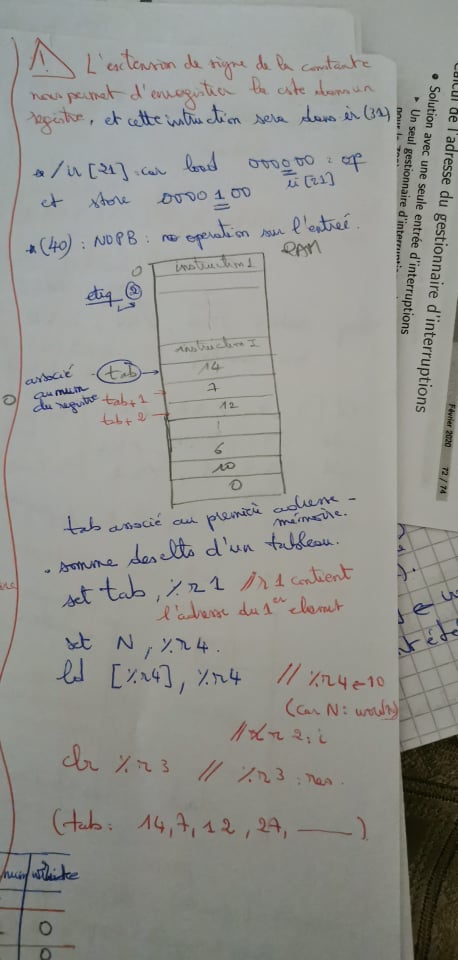 L'extension de signe de la constante
nous permet d'enregistrer la cste dans un
registre, et cette instruction sera dans ir (31)
* /ir [21] : car load 000000 : op
et store 0000100 ir [21]
* (40) : NOPB : no operation sur l'entrée.
RAM
0 instruction 1
etiq 2
instruction I
associé au num du registre
tab 14
tab+1 7
tab+2 12
6
10
0
tab associé au premier adresse
mémoire.
. somme des elts d'un tableau.
set tab, %r1 // r1 contient
l'adresse du 1er element
set N, %r4.
ld [%r4], %r4 // %r4 = 10
(car N: word
// %r2: i
clr %r3 // %r3 : res.
(tab: 14, 7, 12, 27, ___ )
num
0
0
calcul de l'adresse du gestionnaire d'interruptions
• Solution avec une seule entrée d'interruptions
Un seul gestionnaire d'interruptions
Février 2020
72 / 74